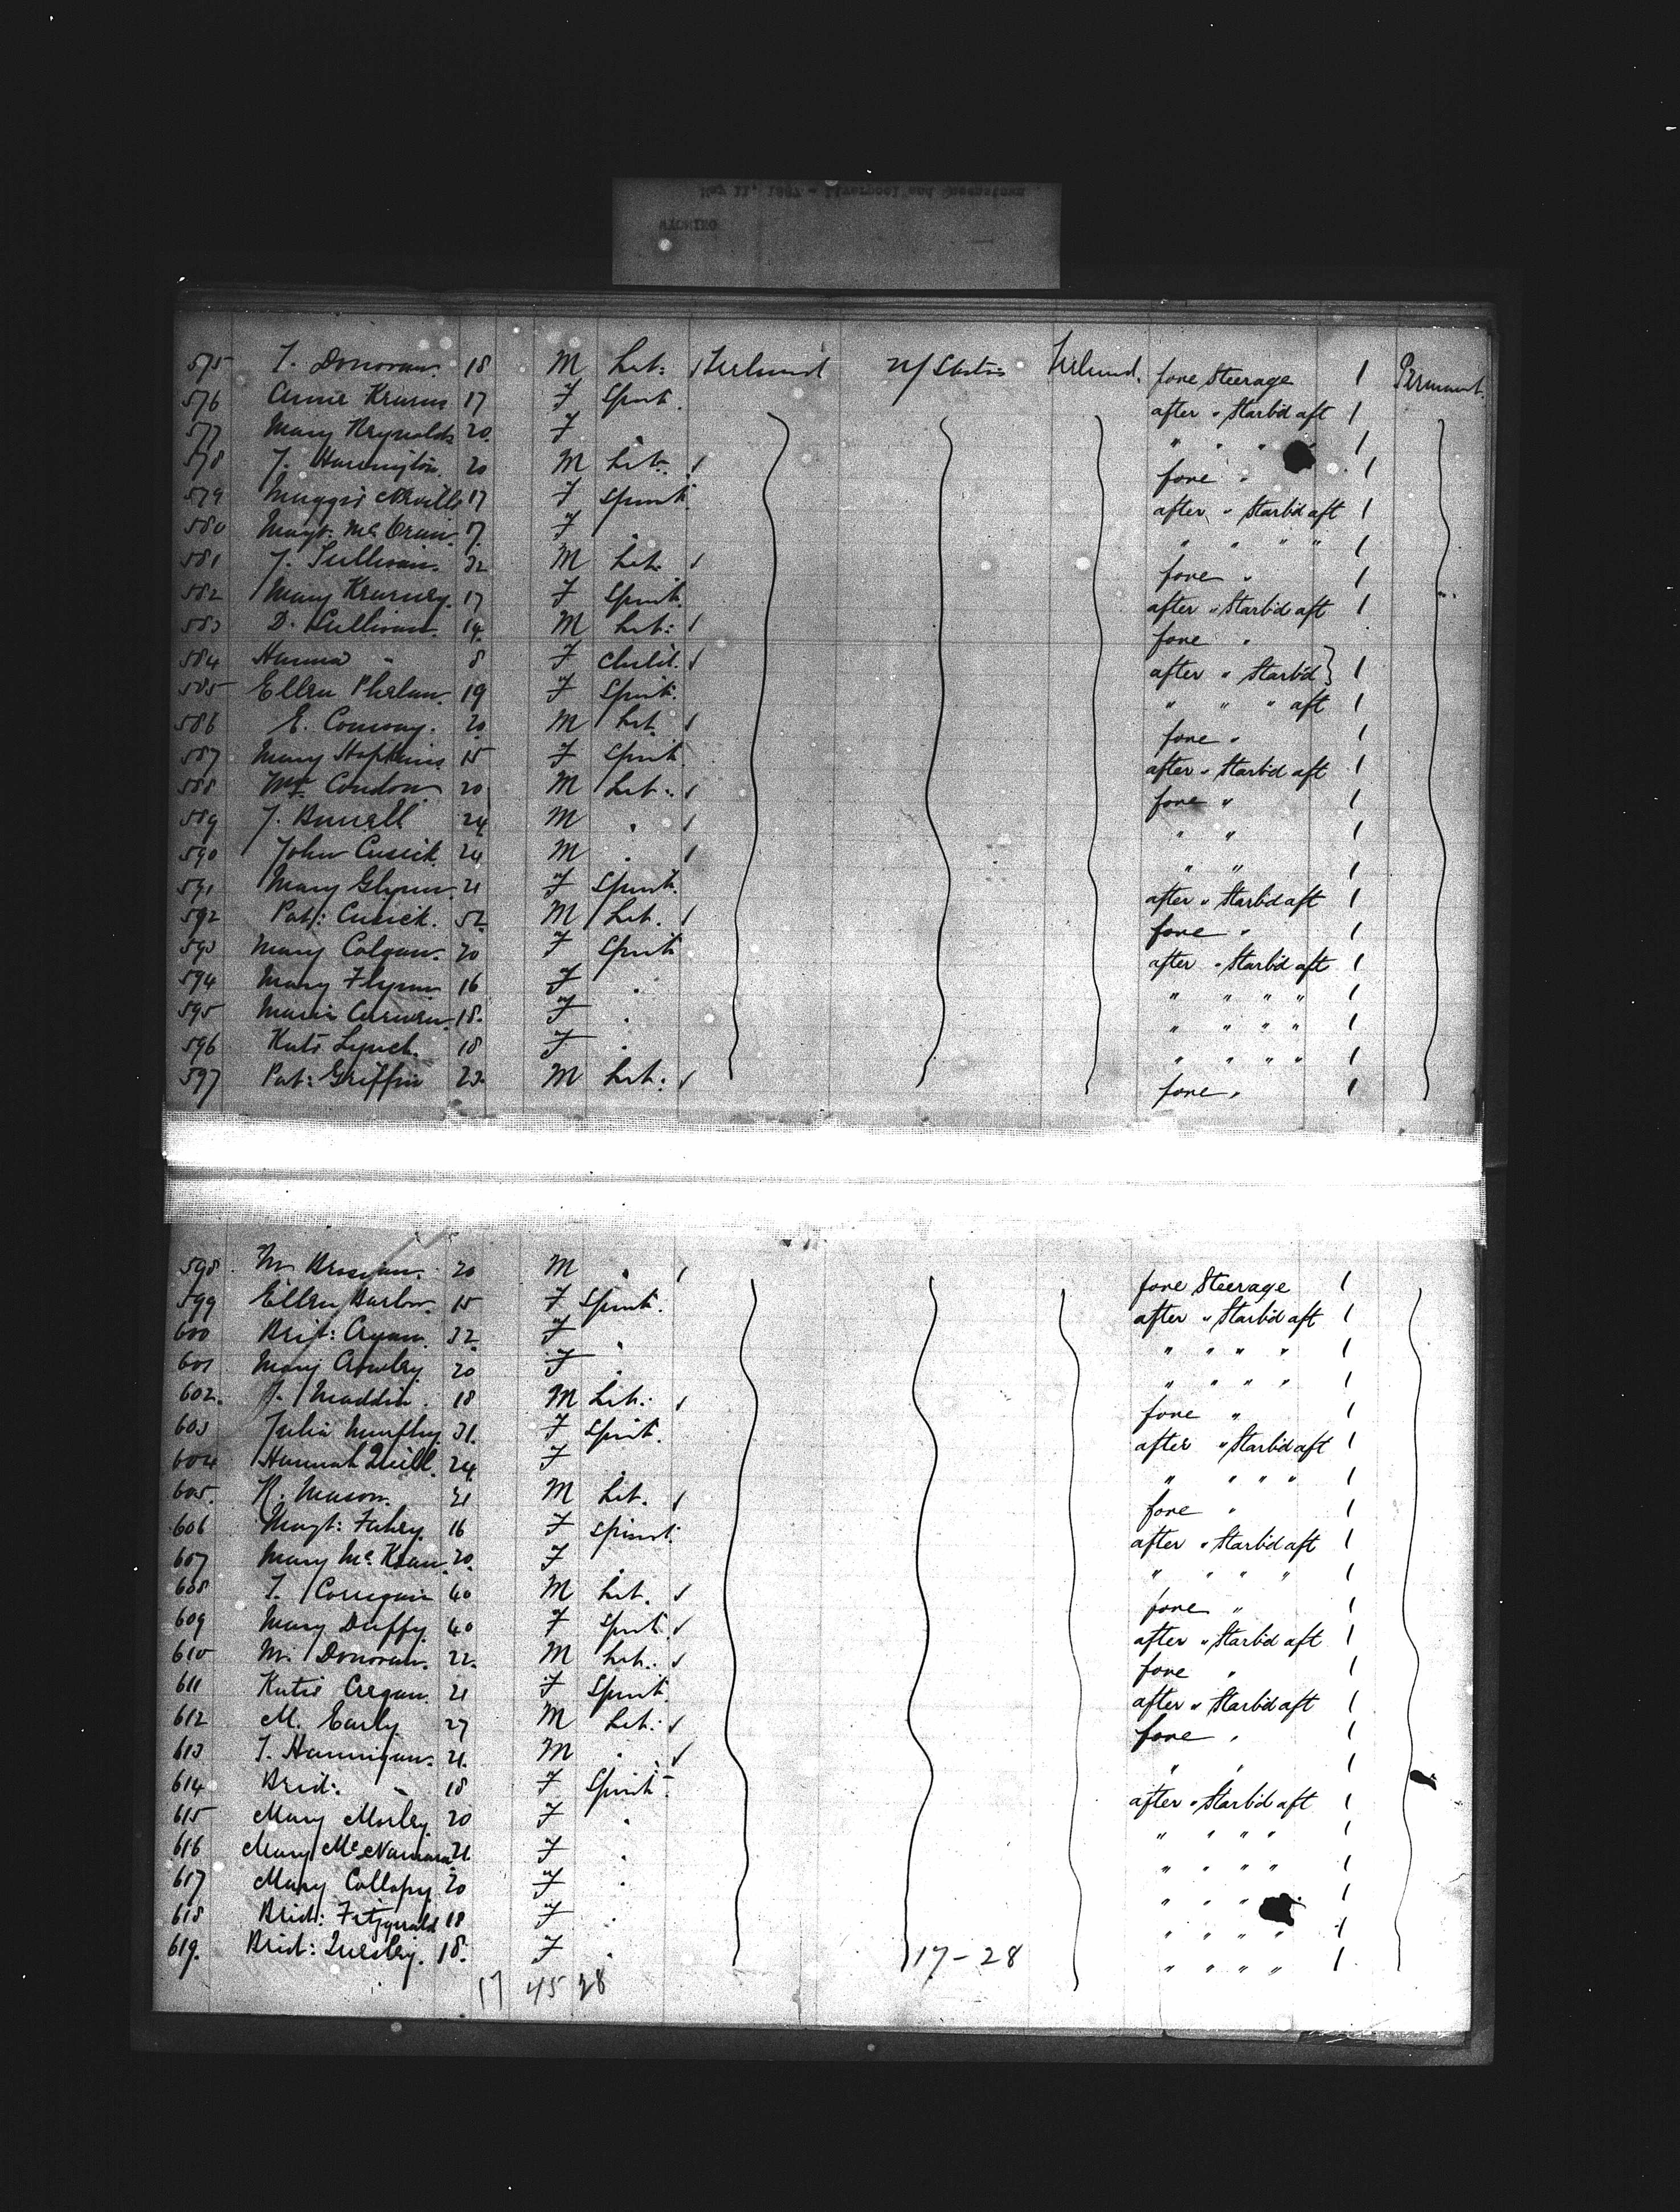 May 11, 1887 - Liverpool and Queenstown
WYOMING
575 T. Donovan. 18 M Lab: / Ireland U/States Ireland. fore Steerage 1 Permanent.
576 Annie 17 F Spinst. after " Starb'd aft 1
577 Mary Reynolds 20. F " " " " 1
578 J. Harrington. 20 M Lab. / fore " 1
579 Maggie Neville 17 F Spinst. after " Starb'd aft 1
580 Magt. Mc 17. F " " " " " 1
581 J. Sullivan. 32 M Lab. / fore " 1
582 Mary Kearney. 17 F Spinst. after " Starb'd aft 1
583 D. Sullivan. 14. M Lab: / fore "
584 Hanna " 8 F Child. / after " Starb'd } 1
585 Ellen Phelan. 19 F Spinst. " " " aft 1
586 E. Conway. 20 M Lab. / fore " 1
587 Mary Hopkins 15 F Spinst. after " Starb'd aft 1
588 Condon 20 M Lab. / fore " 1
589 J. 24 M " / " " 1
590 John Cusick. 24 M " / " " 1
591 Mary Glynn 21 F Spinst. after " Starb'd aft 1
592 Pat: Cusick. 52. M Lab. / fore " 1
593 Mary Colgan. 20 F Spinst. after " Starb'd aft 1
594 Mary Flynn 16 F " " " " " 1
595 18. F " " " " " 1
596 Kate Lynch. 18 F " " " " " 1
597 Pat: Griffin 23. M Lab: / fore " 1
598. M. 20 M " / fore Steerage 1
599 Ellen Barlow. 15 F Spinst. after " Starb'd aft 1
600 Brid: Cryan. 32. F " " " " " 1
601 Mary Crowley. 20 F " " " " " 1
602. J. Maddin. 18 M Lab: / fore " 1
603 Julia Murphy 31. F Spinst. after " Starb'd aft 1
604 Hannah Quill. 24. F " " " " " 1
605. R. Mason. 21 M Lab. / fore " 1
606 Magt: Fahey. 16 F Spinst. after " Starb'd aft 1
607 Mary Mc 20. F " " " " " 1
608 T. Corrigan 40 M Lab. / fore " 1
609 Mary Duffy. 40 F Spinst. / after " Starb'd aft 1
610 M. Donovan. 22. M Lab. / fore " 1
611 Katie Cregan. 21 F Spinst. after " Starb'd aft 1
612 M. Early 27 M Lab: / fore " 1
613 T. Hannigan. 21. M " / " " 1
614 Brid: " 18 F Spinst. after " Starb'd aft 1
615 Mary Morley. 20 F " " " " " 1
616 Mary McNamara 21. F " " " " " 1
617 Mary Collopy. 20 F " " " " 1
618 Brid: Fitzgerald 18 F " " " " " 1
619. Brid: 18. F " 17-28 " " " " 1
17 45 28